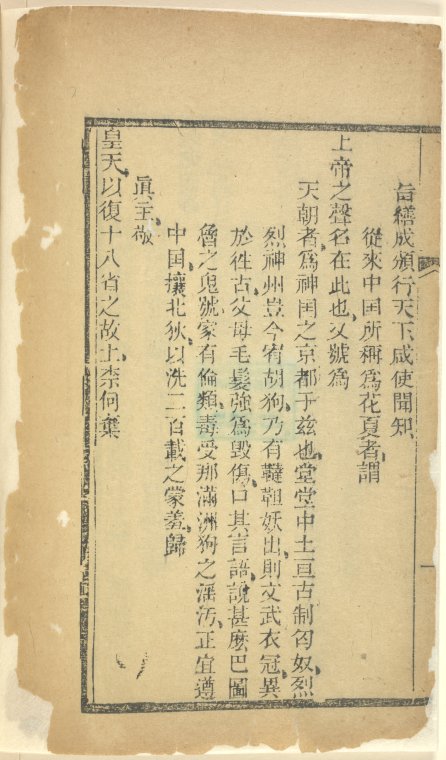 旨繕成頒行天下咸使聞知
從來中囯所稱為花夏者謂
上帝之聲名在此也又號為
天朝者為神囯之京都于茲也堂堂中土亘古制匈奴烈
烈神州豈今宥胡狗乃有韃靼妖出則文武衣冠異
於徃古父母毛髮強為毀傷口其言語說甚麽巴圖
魯之鬼號家有倫類毒受那滿洲狗之淫汚正宜遵
中囯攘北狄以洗二百載之蒙羞歸
眞主敬
皇天以復十八省之故土柰何棄